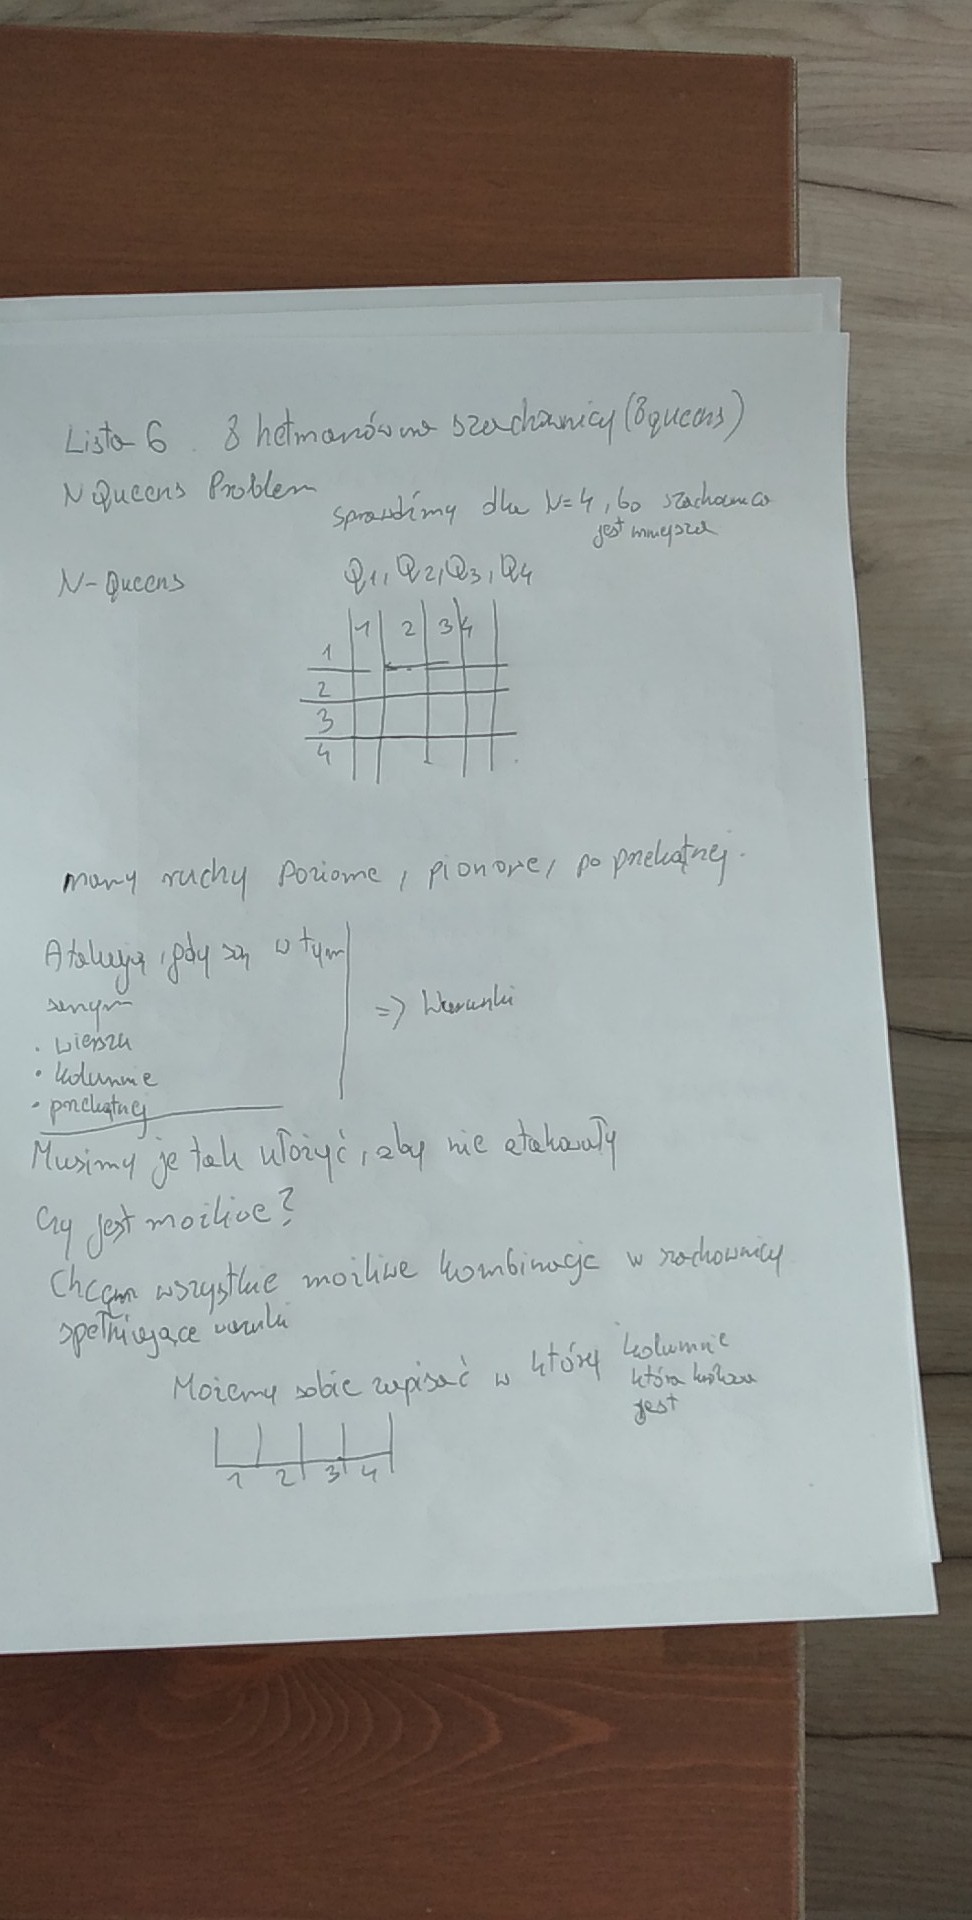 Lista 6 8 hetmanów na szachownicy (8queens)
N Queens Problem
sprawdzimy dla N=4, bo szachownica
jest mniejsza
N-Queens Q1, Q2, Q3, Q4
1 2 3 4
1
2
3
4
mamy ruchy poziome, pionowe, po przekątnej.
Atakują, gdy są w tym
samym
• wierszu
• kolumnie
• przekątnej
=> Warunki
Musimy je tak ułożyć, aby nie atakowały
Czy jest możliwe?
Chcemy wszystkie możliwe kombinacje w szachownicy
spełniające warunki
Możemy sobie zapisać w której kolumnie
która królowa
jest
1 2 3 4